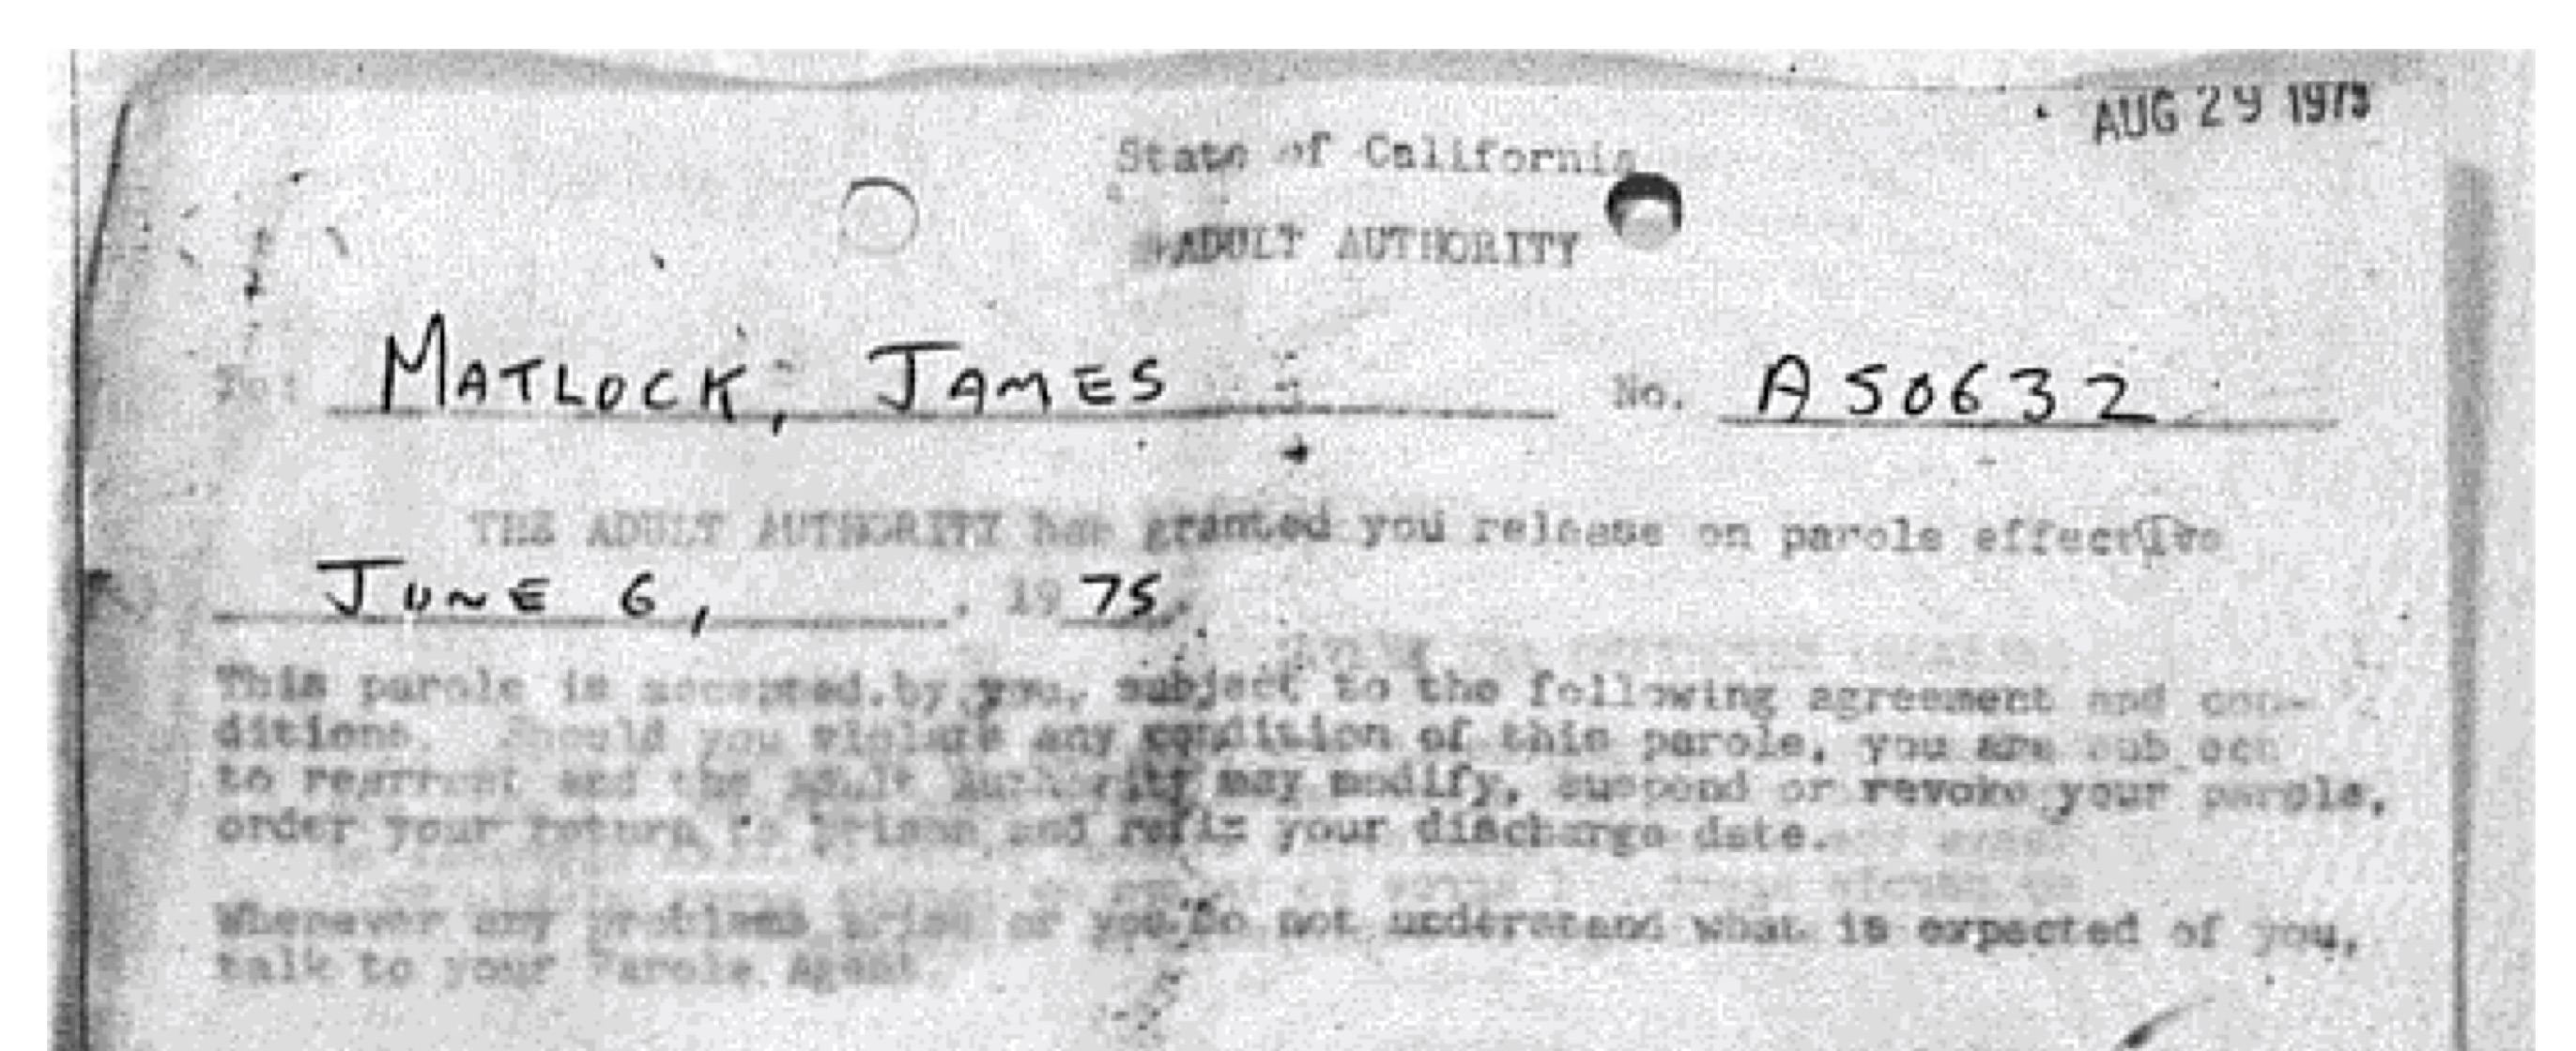 AUG 29 1975
State of California
ADULT AUTHORITY
To: MATLOCK, JAMES No. A50632
THE ADULT AUTHORITY has granted you release on parole effective
JUNE 6, , 19 75.
This parole is accepted by you, subject to the following agreement and con-
ditions. Should you violate any condition of this parole, you are subject
to rearrest and the Adult Authority may modify, suspend or revoke your parole,
order your return to prison and refix your discharge date.
Whenever any problems arise or you do not understand what is expected of you,
talk to your Parole Agent.